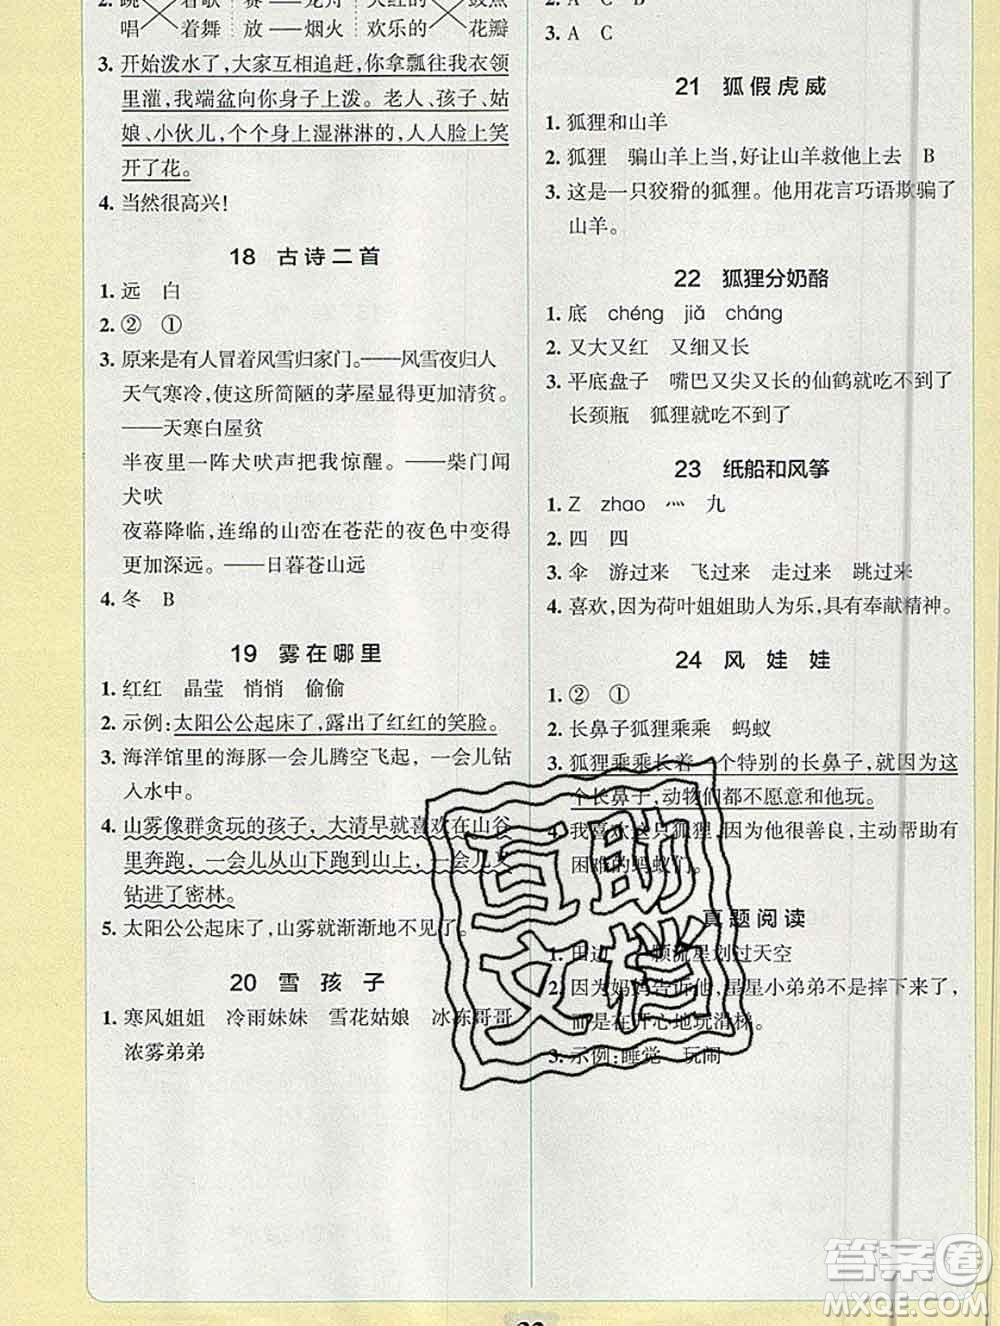 2. 跳 着歌 赛 龙舟 大红的 鼓点
唱 着舞 放 — 烟火 欢乐的 花瓣
3. 开始泼水了，大家互相追赶，你拿瓢往我衣领
里灌，我端盆向你身子上泼。老人、孩子、姑
娘、小伙儿，个个身上湿淋淋的，人人脸上笑
开了花。
4. 当然很高兴！
18 古诗二首
1. 远 白
2. ② ①
3. 原来是有人冒着风雪归家门。——风雪夜归人
天气寒冷，使这所简陋的茅屋显得更加清贫。
——天寒白屋贫
半夜里一阵犬吠声把我惊醒。——柴门闻
犬吠
夜幕降临，连绵的山峦在苍茫的夜色中变得
更加深远。——日暮苍山远
4. 冬 B
19 雾在哪里
1. 红红 晶莹 悄悄 偷偷
2. 示例：太阳公公起床了，露出了红红的笑脸。
3. 海洋馆里的海豚一会儿腾空飞起，一会儿钻
入水中。
4. 山雾像群贪玩的孩子，大清早就喜欢在山谷
里奔跑，一会儿从山下跑到山上，一会儿又
钻进了密林。
5. 太阳公公起床了，山雾就渐渐地不见了。
20 雪孩子
1. 寒风姐姐 冷雨妹妹 雪花姑娘 冰冻哥哥
浓雾弟弟
2. A C B
3. A C
21 狐假虎威
1. 狐狸和山羊
2. 狐狸 骗山羊上当，好让山羊救他上去 B
3. 这是一只狡猾的狐狸。他用花言巧语欺骗了
山羊。
22 狐狸分奶酪
1. 底 chéng jiǎ cháng
2. 又大又红 又细又长
3. 平底盘子 嘴巴又尖又长的仙鹤就吃不到了
长颈瓶 狐狸就吃不到了
23 纸船和风筝
1. Z zhao 灬 九
2. 四 四
3. 伞 游过来 飞过来 走过来 跳过来
4. 喜欢，因为荷叶姐姐助人为乐，具有奉献精神。
24 风娃娃
1. ② ①
2. 长鼻子狐狸乘乘 蚂蚁
3. 狐狸乘乘长着一个特别的长鼻子，就因为这
个长鼻子，动物们都不愿意和他玩。
4. 我喜欢这只狐狸，因为他很善良，主动帮助有
困难的蚂蚁们。
真题阅读
1. 田边 一颗流星划过天空
2. 因为妈妈告诉他，星星小弟弟不是摔下来了，
而是在开心地玩滑梯。
3. 示例：睡觉 玩闹
互助
文档
答案圈
MXQE.COM
32